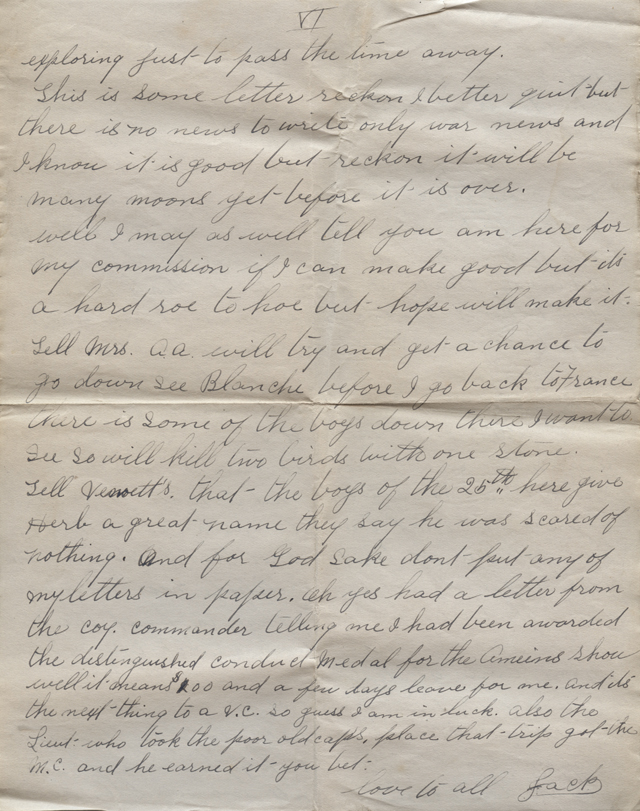 VI
exploring just to pass the time away.
This is some letter reckon I better quit but
there is no news to write only war news and
I know it is good but reckon it will be
many moons yet before it is over.
well I may as well tell you am here for
my commission if I can make good but its
a hard roe to hoe but hope will make it.
Tell Mrs. A.A. will try and get a chance to
go down see Blanche before I go back to France
there is some of the boys down there I want to
see so will kill two birds with one stone.
Tell that the boys of the 25th here give
Herb a great name they say he was scared of
nothing. And for God sake dont put any of
my letters in paper. Oh yes had a letter from
the coy. commander telling me I had been awarded
the distinguished conduct Medal for the Ameins show
well it means $100 and a few days leave for me. and its
the next thing to a V.C. so guess I am in luck. also the
Lieut who took the poor old capts, place that trip got the
M.C. and he earned it you bet.
love to all Jack